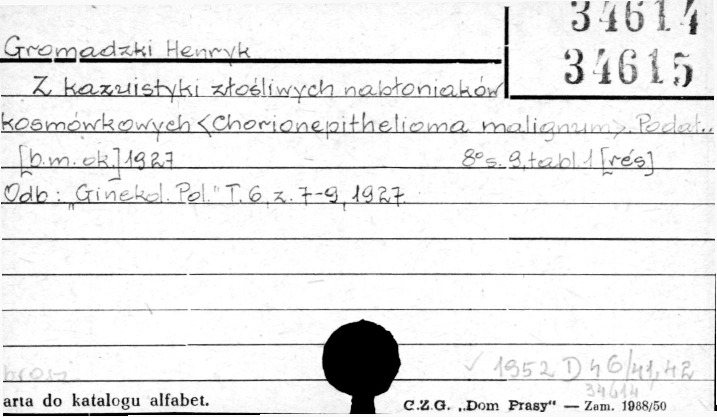 34614
34615
Gromadzki Henryk
Z kazuistyki złośliwych nabłoniaków
kosmówkowych <Chorionepithelioma malignum>. Podał..
[b.m.ok.] 1927 8° s. 9, tabl. 1 [rés]
Odb: "Ginekol. Pol." T. 6, z. 7-9, 1927
brosz.
✓ 1952 D 46/41,42
34614
arta do katalogu alfabet.
C.Z.G. „Dom Prasy" — Zam. 1988/50